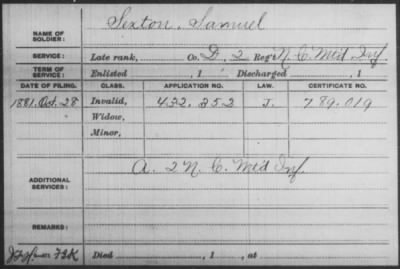 Sexton, Samuel
NAME OF SOLDIER:
SERVICE: Late rank, Co. D, 2 Reg't N. C. Mtd Inf.
TERM OF SERVICE: Enlisted , 1 Discharged , 1
DATE OF FILING. CLASS. APPLICATION NO. LAW. CERTIFICATE NO.
1881, Oct. 28 Invalid, 432.352 J. 789.019
Widow,
Minor,
A. 2 N. C. Mtd Inf.
ADDITIONAL SERVICES:
REMARKS:
Died , 1 , at